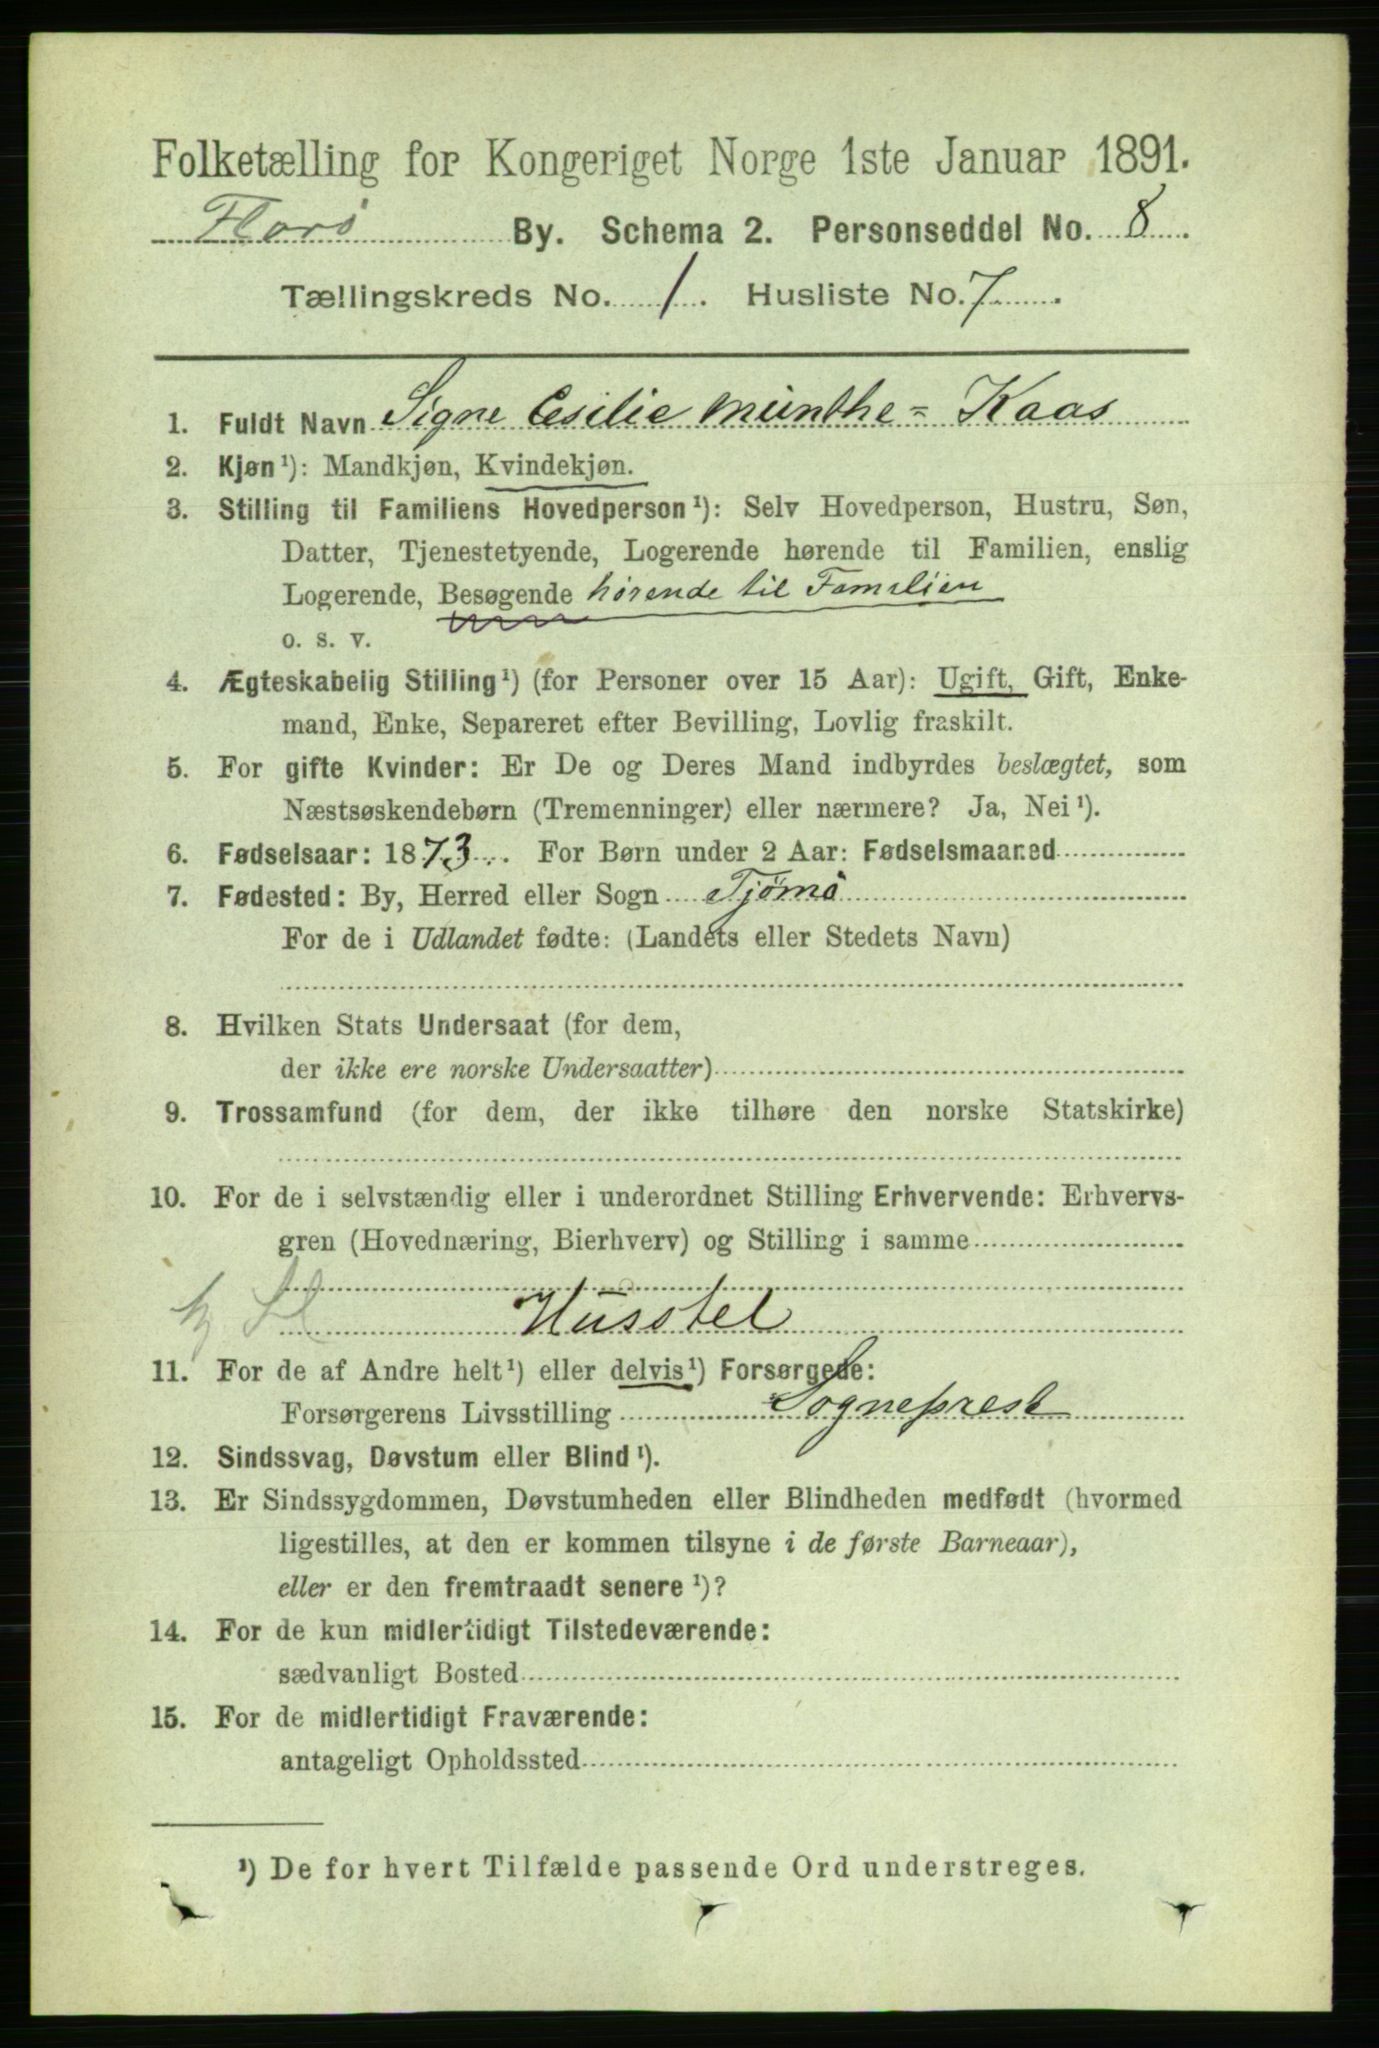 Folketælling for Kongeriget Norge 1ste Januar 1891.
Florö By. Schema 2. Personseddel No. 8.
Tællingskreds No. 1. Husliste No. 7.
1. Fuldt Navn Signe Cesilie Münthe=Kaas
2. Kjøn¹): Mandkjøn, Kvindekjøn.
3. Stilling til Familiens Hovedperson¹): Selv Hovedperson, Hustru, Søn,
Datter, Tjenestetyende, Logerende hørende til Familien, enslig
Logerende, Besøgende hörende til Familien
o. s. v.
4. Ægteskabelig Stilling¹) (for Personer over 15 Aar): Ugift, Gift, Enke-
mand, Enke, Separeret efter Bevilling, Lovlig fraskilt.
5. For gifte Kvinder: Er De og Deres Mand indbyrdes beslægtet, som
Næstsøskendebørn (Tremenninger) eller nærmere? Ja, Nei¹).
6. Fødselsaar: 1873. For Børn under 2 Aar: Fødselsmaaned
7. Fødested: By, Herred eller Sogn Tjömö
For de i Udlandet fødte: (Landets eller Stedets Navn)
8. Hvilken Stats Undersaat (for dem,
der ikke ere norske Undersaatter)
9. Trossamfund (for dem, der ikke tilhøre den norske Statskirke)
10. For de i selvstændig eller i underordnet Stilling Erhvervende: Erhvervs-
gren (Hovednæring, Bierhverv) og Stilling i samme
Husstel
11. For de af Andre helt¹) eller delvis¹) Forsørgede:
Forsørgerens Livsstilling Sogneprest
12. Sindssvag, Døvstum eller Blind¹).
13. Er Sindssygdommen, Døvstumheden eller Blindheden medfødt (hvormed
ligestilles, at den er kommen tilsyne i de første Barneaar),
eller er den fremtraadt senere¹)?
14. For de kun midlertidigt Tilstedeværende:
sædvanligt Bosted
15. For de midlertidigt Fraværende:
antageligt Opholdssted
¹) De for hvert Tilfælde passende Ord understreges.